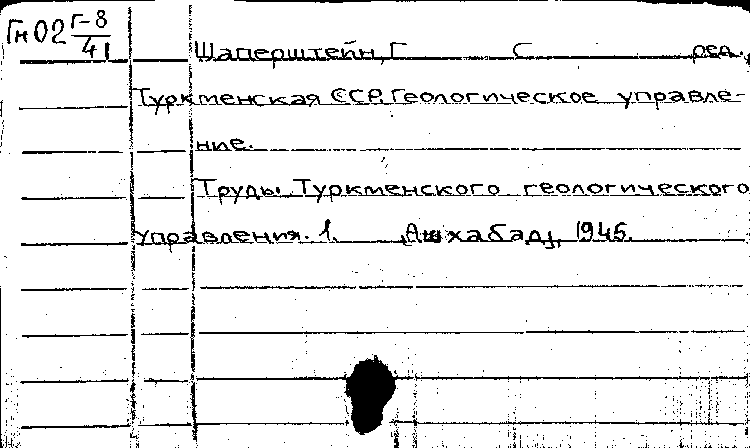 Гн02 Г-8/41
Шаперштейн, Г С ред.,
Туркменская ССР. Геологическое управле-
ние.
Труды Туркменского геологического
управления. 1. [Ашхабад], 1945.